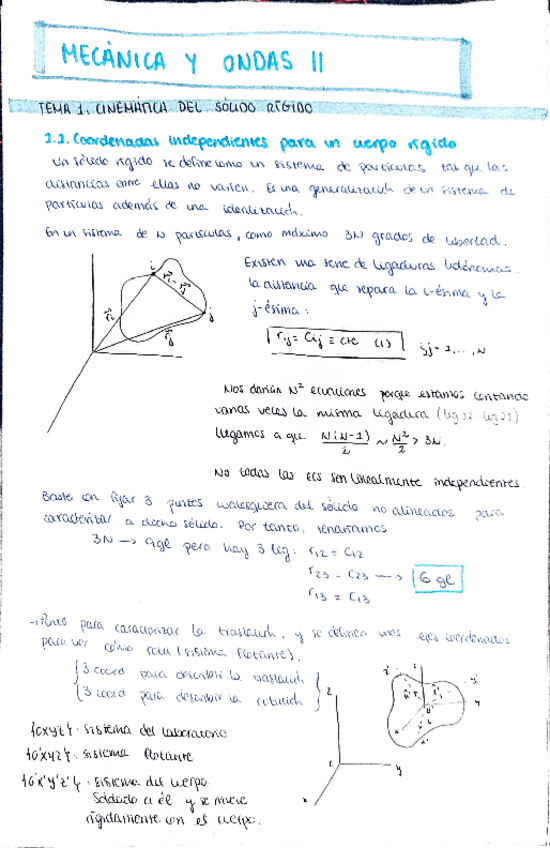 MECÁNICA Y ONDAS II
TEMA 1. CINEMÁTICA DEL SÓLIDO RÍGIDO
1.1. Coordenadas independientes para un cuerpo rígido
Un sólido rígido se define como un sistema de partículas tal que las
distancias entre ellas no varíen. Es una generalización de un sistema de
partículas además de una idealización.
En un sistema de N partículas, como máximo 3N grados de libertad.
Existen una serie de ligaduras holónomas.
la distancia que separa la i-ésima y la
j-ésima:
r_ij = C_ij ≡ cte (1) i,j = 1, ..., N
i
r_i - r_j
r_i
j
r_j
Nos darían N² ecuaciones porque estamos contando
varias veces la misma ligadura (lig 12 = lig 21)
llegamos a que N(N-1)/2 ~ N²/2 > 3N.
No todas las ecs son linealmente independientes.
Basta con fijar 3 puntos cualesquiera del sólido no alineados para
caracterizar a dicho sólido. Por tanto, tendríamos
3N → 9gl pero hay 3 lig: r12 = C12
r23 = C23 → 6 gl
r13 = C13
→ Punto para caracterizar la traslación, y se definen unos ejes coordenados
para ver cómo rota (sistema flotante).
{3 coord para describir la traslación
{3 coord para describir la rotación }
{Oxyz} - sistema del laboratorio
{O'xyz} - sistema flotante
{O'x'y'z'} - sistema del cuerpo
Soldado a él y se mueve
rígidamente con el cuerpo.
z
y
x
z'
y'
y